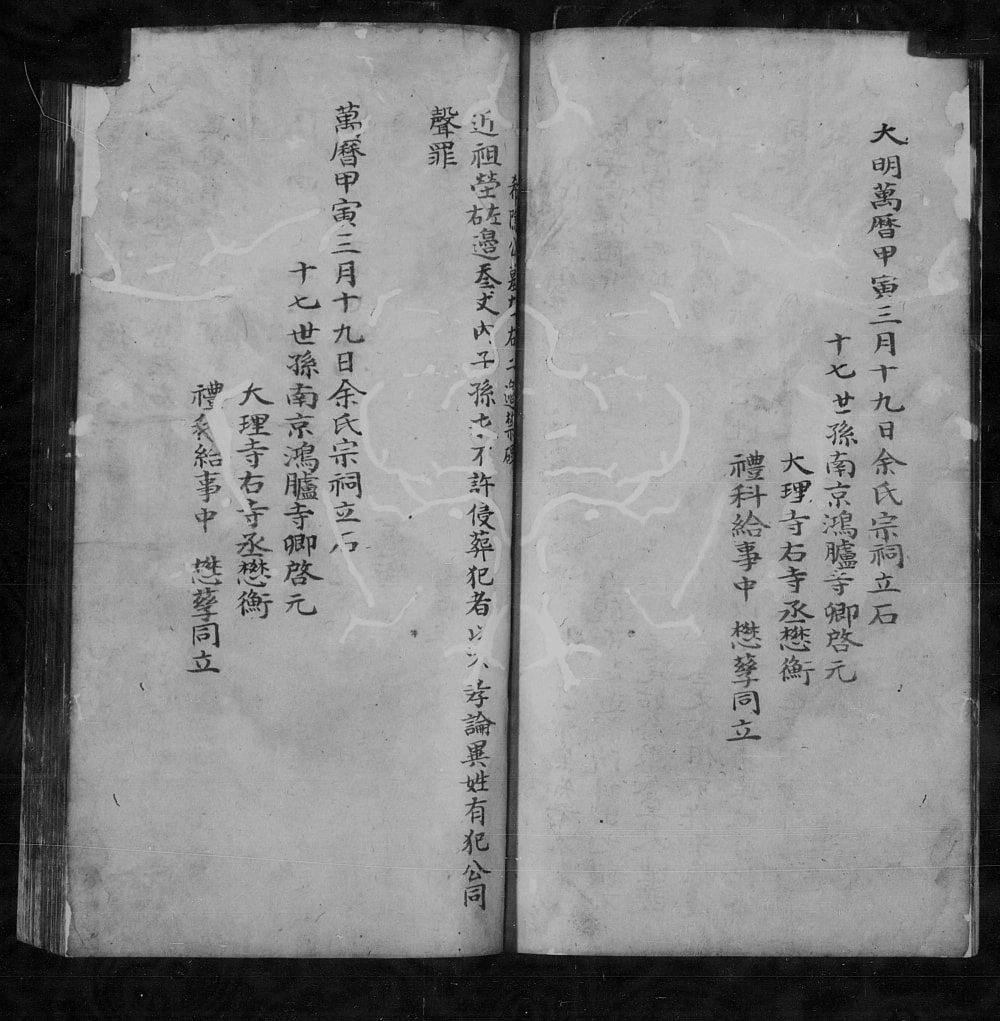 大明萬曆甲寅三月十九日余氏宗祠立石
十七世孫南京鴻臚寺卿啓元
大理寺右寺丞懋衡
禮科給事中 懋孳同立
公墓
近祖塋左右邉叁丈内子孫 不許侵葬犯者以不孝論異姓有犯公同
聲罪
萬曆甲寅三月十九日余氏宗祠立石
十七世孫南京鴻臚寺卿啓元
大理寺右寺丞懋衡
禮科給事中 懋孳同立